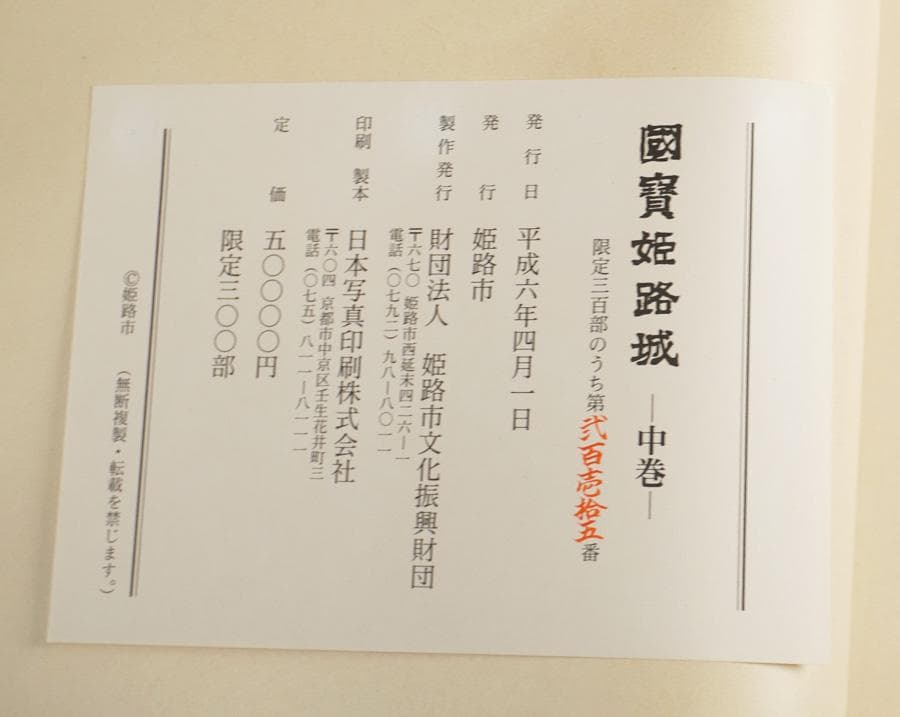 國寳姫路城 ―中巻―
限定三百部のうち第弐百壱拾五番
発行日 平成六年四月一日
発行 姫路市
製作発行 財団法人 姫路市文化振興財団
〒六七〇 姫路市西延末四二六―一
電話(〇七九二)九八―八〇一一
印刷 製本 日本写真印刷株式会社
〒六〇四 京都市中京区壬生花井町三
電話(〇七五)八一一―八一一一
定価 五〇〇〇〇円
限定三〇〇部
©姫路市 (無断複製・転載を禁じます。)